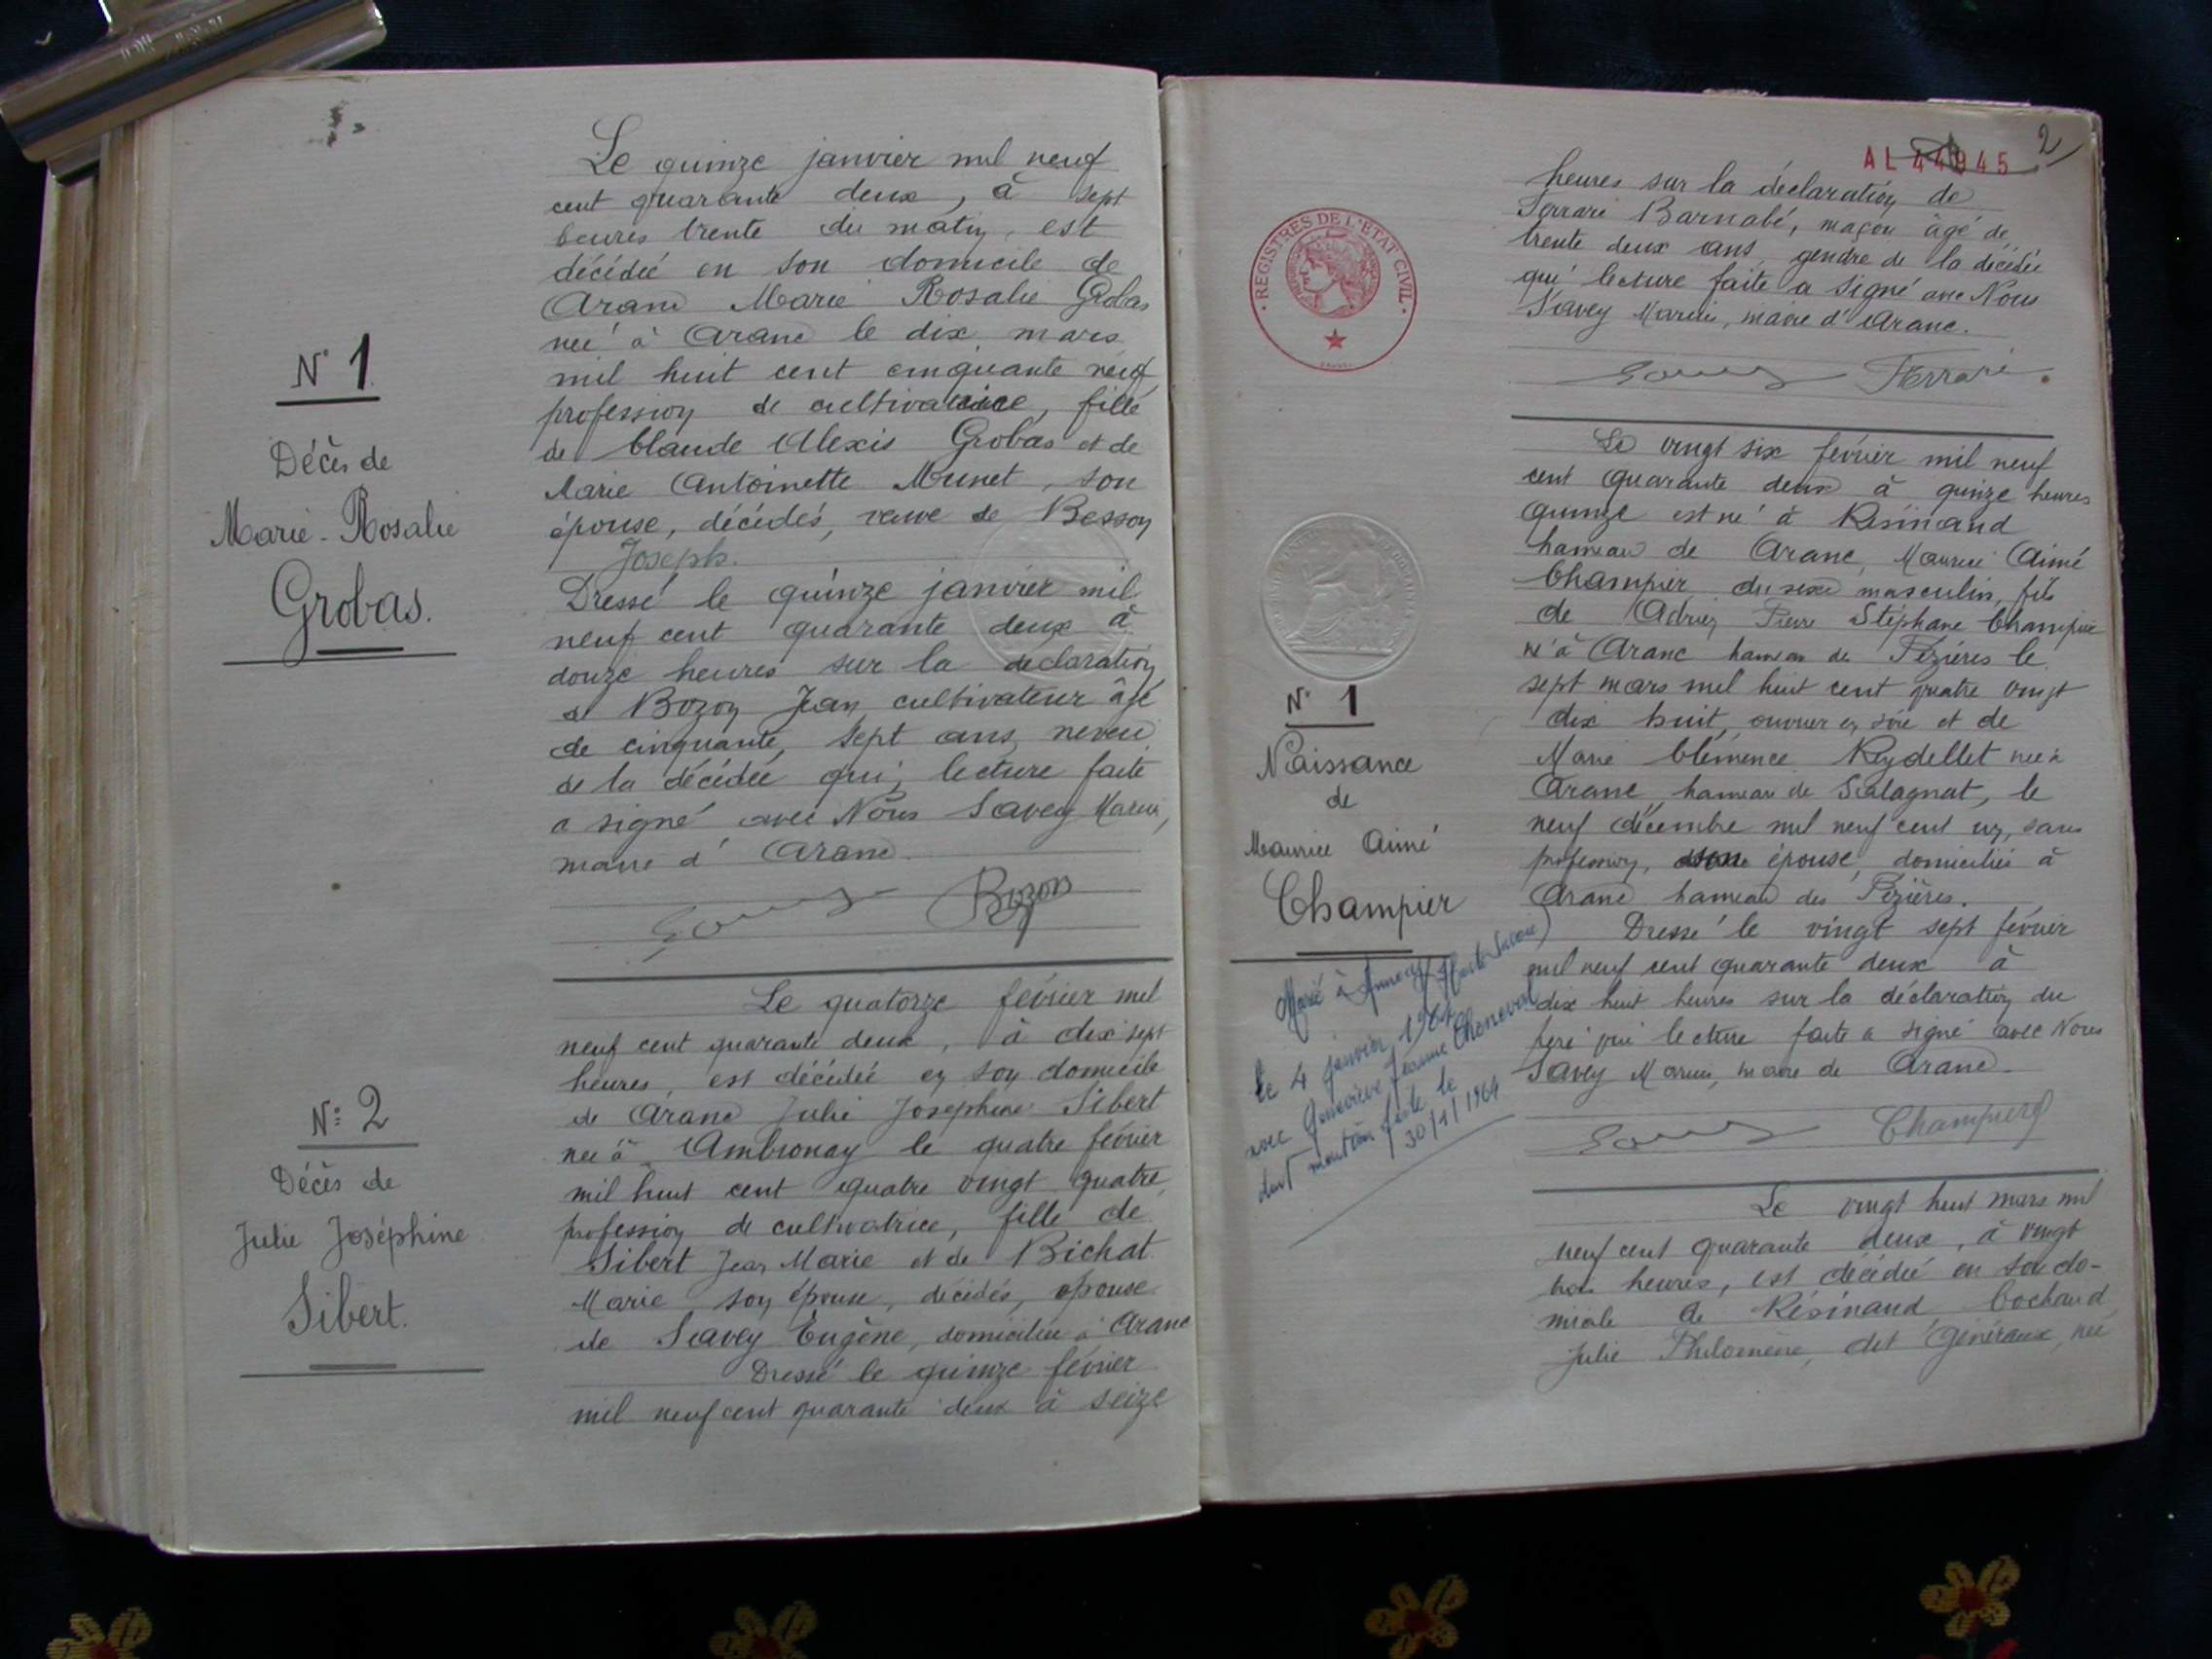 N° 1
Décès de
Marie-Rosalie
Grobas.
Le quinze janvier mil neuf
cent quarante deux, à sept
heures trente du matin, est
décédée en son domicile de
Aranc Marie Rosalie Grobas
née à Aranc le dix mars
mil huit cent cinquante neuf
profession de cultivatrice, fille
de Claude Alexis Grobas et de
Marie Antoinette Munet, son
épouse, décédés, veuve de Besson
Joseph.
Dressé le quinze janvier mil
neuf cent quarante deux à
douze heures sur la déclaration
de Bozon Jean cultivateur âgé
de cinquante sept ans, neveu
de la décédée qui, lecture faite
a signé avec Nous Savey Marius,
maire d'Aranc.
Savey Bozon
N° 2
Décès de
Julie Joséphine
Sibert.
Le quatorze février mil
neuf cent quarante deux, à dix sept
heures, est décédée en son domicile
de Aranc Julie Joséphine Sibert
née à Ambronay le quatre février
mil huit cent quatre vingt quatre,
profession de cultivatrice, fille de
Sibert Jean Marie et de Bichat
Marie, son épouse, décédés, épouse
de Savey Eugène, domiciliée à Aranc
Dressé le quinze février
mil neuf cent quarante deux à seize
2
AL 44945
REGISTRES DE L'ETAT CIVIL
heures sur la déclaration de
Ferrari Barnabé, maçon âgé de
trente deux ans, gendre de la décédée
qui lecture faite a signé avec Nous
Savey Marius, maire d'Aranc.
Savey Ferrari
N° 1
Naissance
de
Maurice Aimé
Champier
Marié à Annecy (Haute Savoie)
le 4 janvier 1964
avec Geneviève Jeanne Cheneval
dont mention faite le
30/1/1964
Le vingt six février mil neuf
cent quarante deux à quinze heures
quinze est né à Résinand
hameau de Aranc, Maurice Aimé
Champier du sexe masculin, fils
de Adrien Pierre Stéphane Champier
né à Aranc hameau de Pézières le
sept mars mil huit cent quatre vingt
dix huit, ouvrier en soie et de
Marie Clémence Reydellet née à
Aranc, hameau de Salagnat, le
neuf décembre mil neuf cent un, sans
profession, son épouse, domiciliés à
Aranc hameau des Pézières.
Dressé le vingt sept février
mil neuf cent quarante deux à
dix huit heures sur la déclaration du
père qui lecture faite a signé avec Nous
Savey Marius, maire de Aranc.
Savey Champier
Le vingt huit mars mil
neuf cent quarante deux, à vingt
trois heures, est décédée en son do-
micile de Résinand Cochaud
Julie Philomène, dit Généraux, née